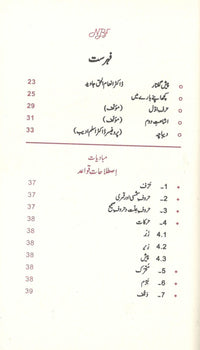 فہرست
پیش گفتار ڈاکٹر انعام الحق جاوید 23
کچھ اپنے بارے میں 25
حرف اول (مؤلف) 29
اشاعت دوم (مؤلف) 31
دیباچہ (پروفیسر ڈاکٹر اسلم ادیب) 33
مبادیات
اصطلاحات قواعد
1- حرف 37
2- حروف شمسی اور قمری 37
3- حروف علت و حروف صحیح 37
4- حرکات 38
4.1 زبر 38
4.2 زیر 38
4.3 پیش 38
5- متحرک 38
6- جزم 38
7- وقف 39